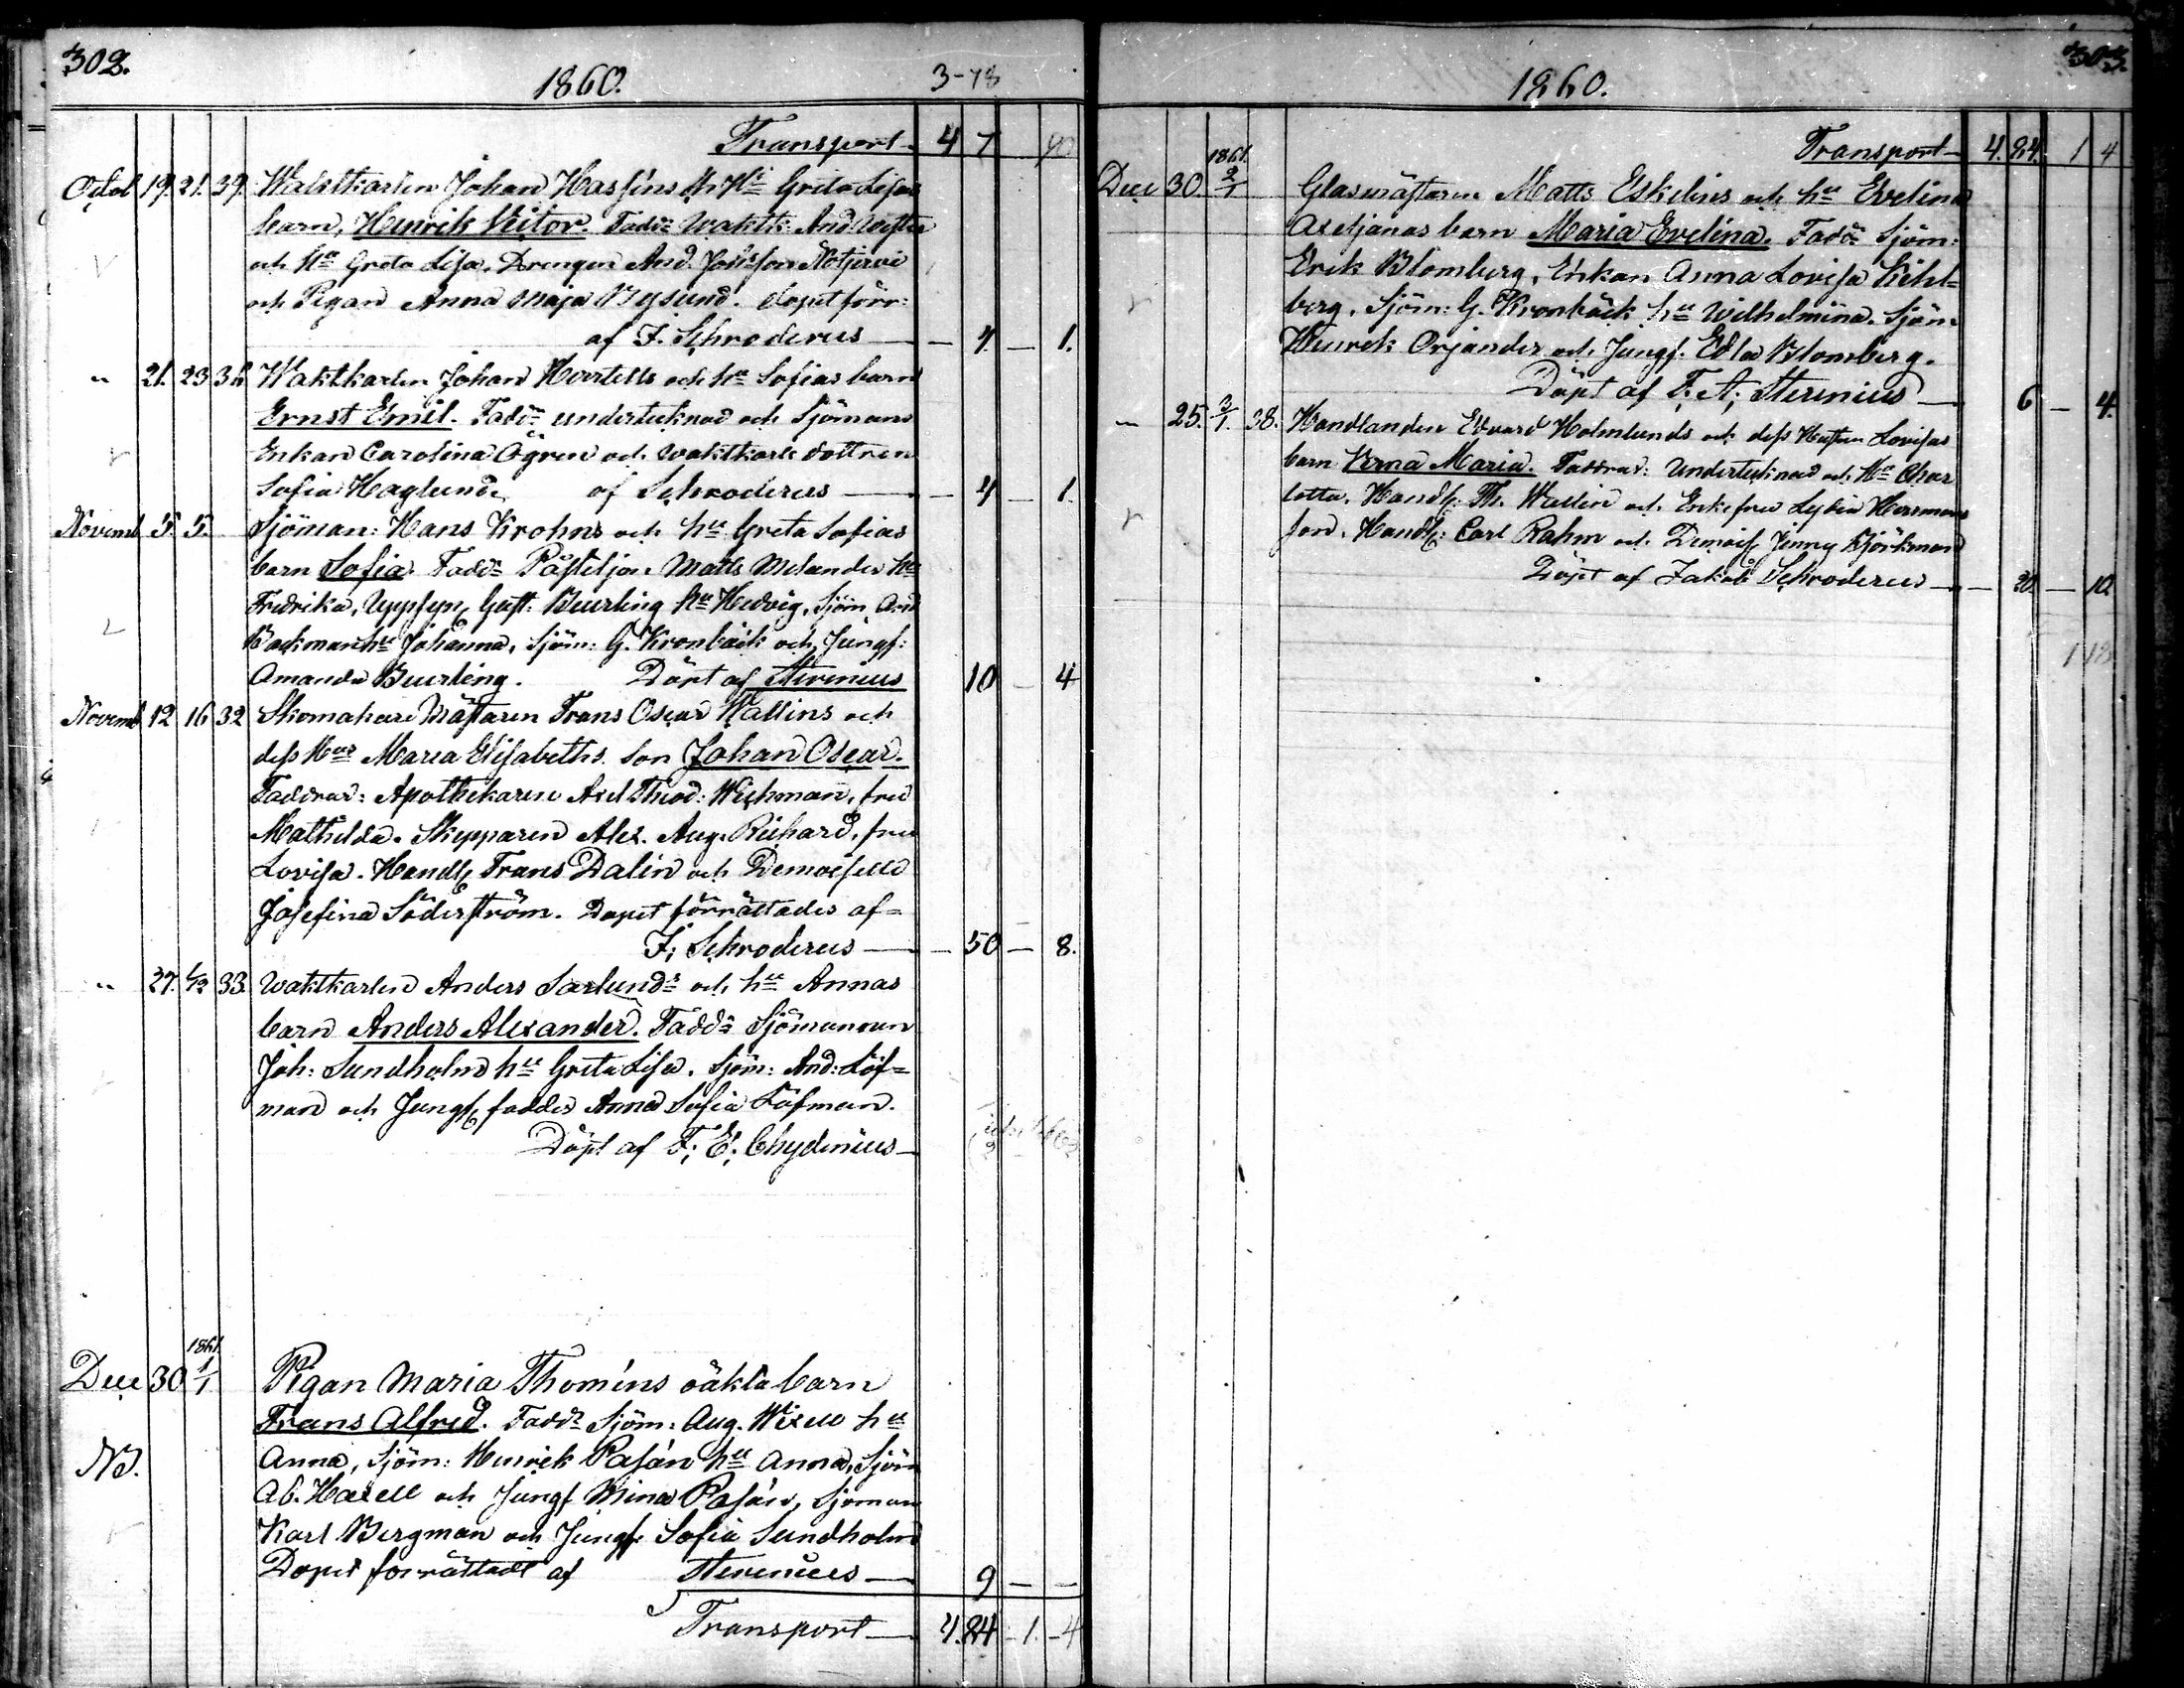 302.
1860.
3-78
Transport 4 7 40
Octob 19. 21. 39. Waktkarlen Johan Hasséns Hu Greta Lisas
barn, Henrik Victor. Fadd: Waktk: And:
och Hu Greta Lisa, Drengen And. Johsson Nötjervi
och Pigan Anna Maja Bysund. dopet förr:
af J. Schroderus — 4. — 1.
" 21. 23 36 Waktkarlen Johan Hertells och hu Sofias barn
Ernst Emil. Fadd: undertecknad och Sjömans
Enkan Carolina Ögren och waktkarls dottren
Sofia Haglund. af Schroderus — 4 — 1.
Novemb 5. 5. Sjöman: Hans Krohns och hu Greta Sofias
barn Sofia. Fadd: Påstiljon Matts Melander hu
Fredrika, Uppsyn Gust: Beurling hu Hedvig, Sjöm And
Backman hu Johanna, Sjöm: G. Kronbäck och Jungf:
Amanda Beurling. Döpt af Stenius 10 — 4
Novemb 12 16 32 Skomakare Mästaren Frans Oscar Wallins och
dess Hus Maria Elisabeths son Johan Oscar.
Faddrar: Apothekaren Axel Theod: Wichman, fru
Mathilda. Skepparen Alex. Aug. Richard, fru
Lovisa. Handl Frans Dalin och Demoiselle
Josefina Söderström. Dopet förrättades af
J. Schroderus — 50 — 8.
" 27. 1/12 33. Waktkarlen Anders Sarlunds och hu Annas
barn Anders Alexander. Fadd: Sjömannen
Joh: Sundholm hu Greta Lisa. Sjöm: And: Löf=
man och Jungf fadder Anna Sofia Löfman.
Döpt af F. E. Chydenius
1861.
Dec 30 1/1 Pigan Maria Thoméns oäkta barn
Frans Alfred. Fadd: Sjöm: Aug. Wixell hu
NB. Anna, Sjöm: Henrik Pasán hu Anna, Sjöm
Ab. Haxell och Jungf Mina Pasán, Sjöman
Karl Bergman och Jungf: Sofia Sundholm
Dopet förrättadt af Sterenius 9 — —
Transport 4.84 — 1. — 4
303.
1860.
Transport 4. 84. 1 4
1861.
Dec 30. 2/1 Glasmästaren Matts Eskelins och hu Evelina
Axeljanas barn Maria Evelina. Fadd: Sjöm:
Erik Blomberg, Enkan Anna Lovisa Kihl=
berg, Sjöm: G. Kronbäck hu Wilhelmina. Sjöm
Henrik Orjander och Jungf: Edla Blomberg.
Döpt af F. A. Sterenius 6 — 4.
" 25. 3/1. 38. Handlanden Edvard Holmlunds och dess Hustru Lovisas
barn Verna Maria. Faddrar: Undertecknad och Hu Char
lotta. Handl: Th. Wallin och Enkefru Lydia Herrman
son. Handl: Carl Rahm och Demois Jenny Björkman
Döpt af Jakob Schroderus — 20. — 10.
1 18